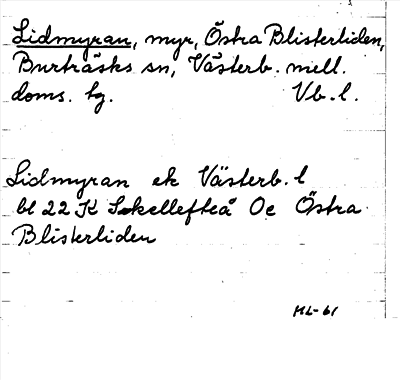 Lidmyran, myr, Östra Blisterliden,
Burträsks sn, Västerb. mell.
doms. tg. Vb. l.
Lidmyran ek Västerb. l
bl 22 K Skellefteå Oe Östra
Blisterliden
ML-61